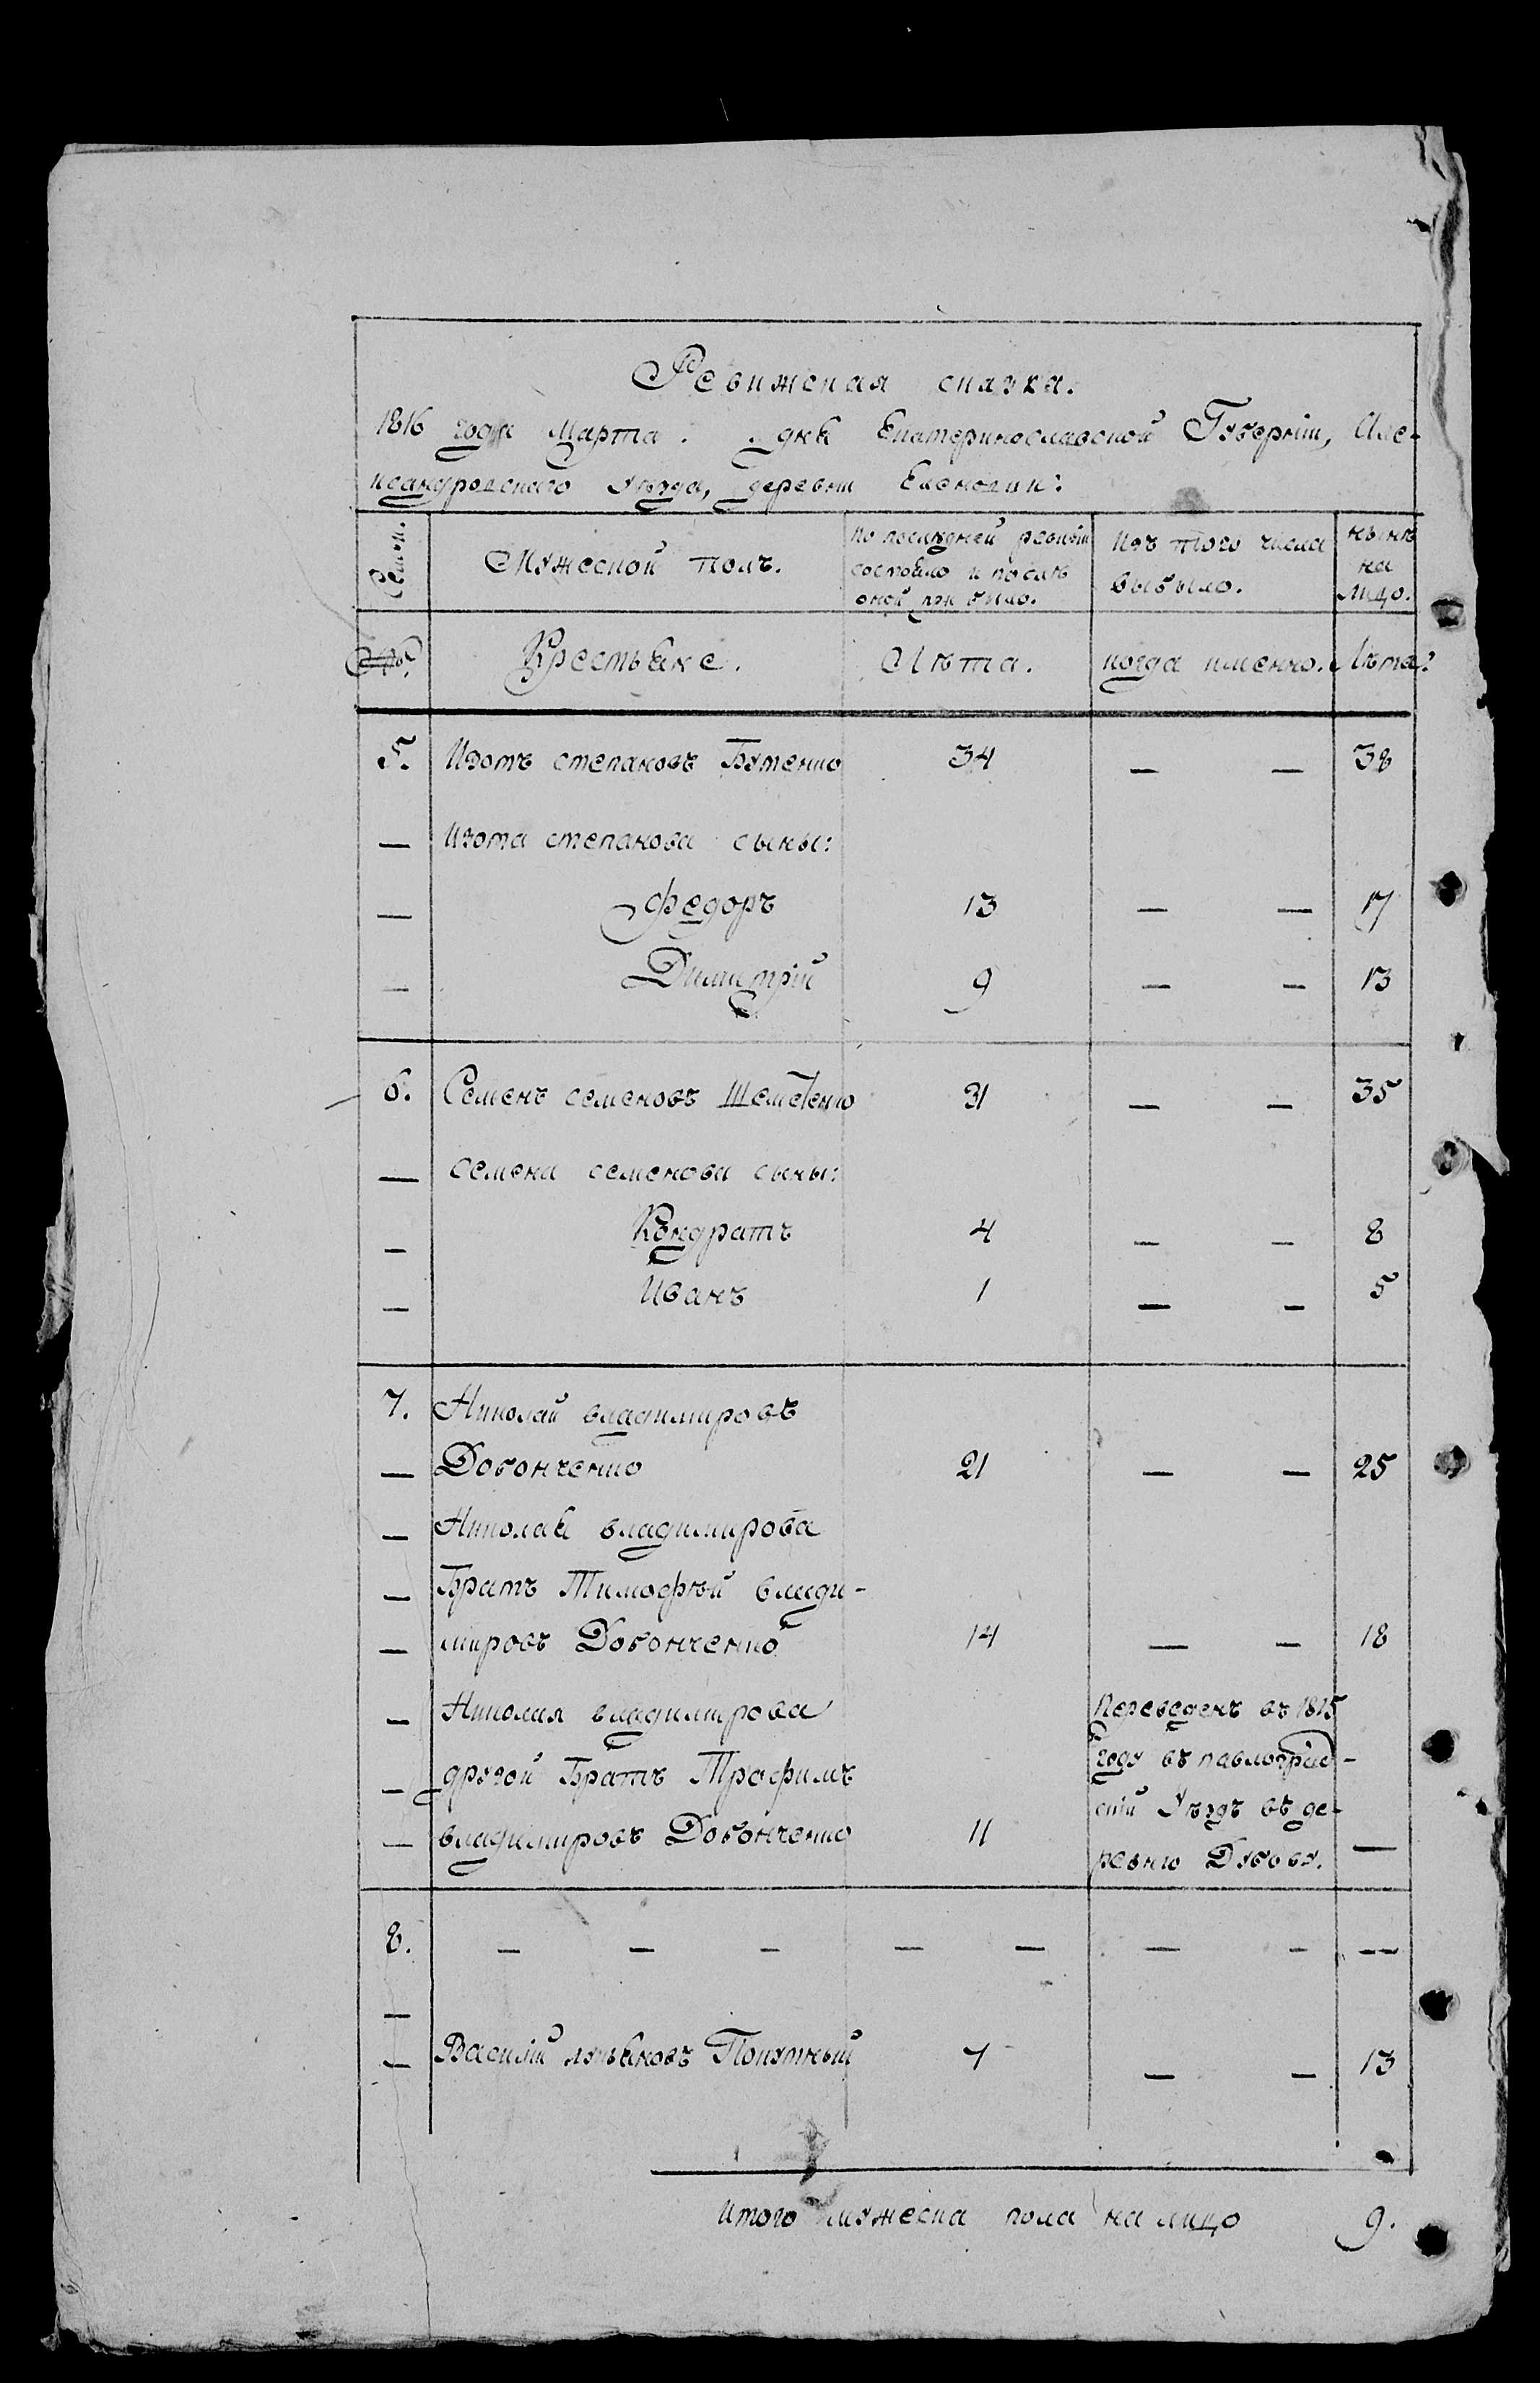 Ревижская сказка.
1816 года Марта. дня Екатеринославской Губерніи, Але-
ксандровскаго Уѣзда, деревни
Семьи. Мужеской полъ. По последней ревизіи состояло и послѣ оной при было. Изъ того числа выбыло. нынѣ на лицо.
№. Крестьяне. Лѣта. когда именно. Лѣта:
5. Изотъ степановъ Бутенко 34 — — 38
— Изота степанова сыны:
— Федоръ 13 — — 17
— Димитрій 9 — — 13
6. Семенъ семеновъ 31 — — 35
— семена семенова сыны:
— Кондратъ 4 — — 8
— Иванъ 1 — — 5
7. Николай владимировъ
— Довонченко 21 — — 25
— Николая владимирова
— Братъ Тимофѣй влади-
— мировъ Довонченко 14 — — 18
— Николая владимирова Переведенъ въ 1815
— другой Братъ Трофимъ году въ павлоград-
скій Уѣздъ въ де-
— владимировъ Довонченко 11 ревню Дубову. —
8. — — — — — — — — —
—
— Василій лукьяновъ 7 — — 13
Итого мужеска пола на лицо 9.